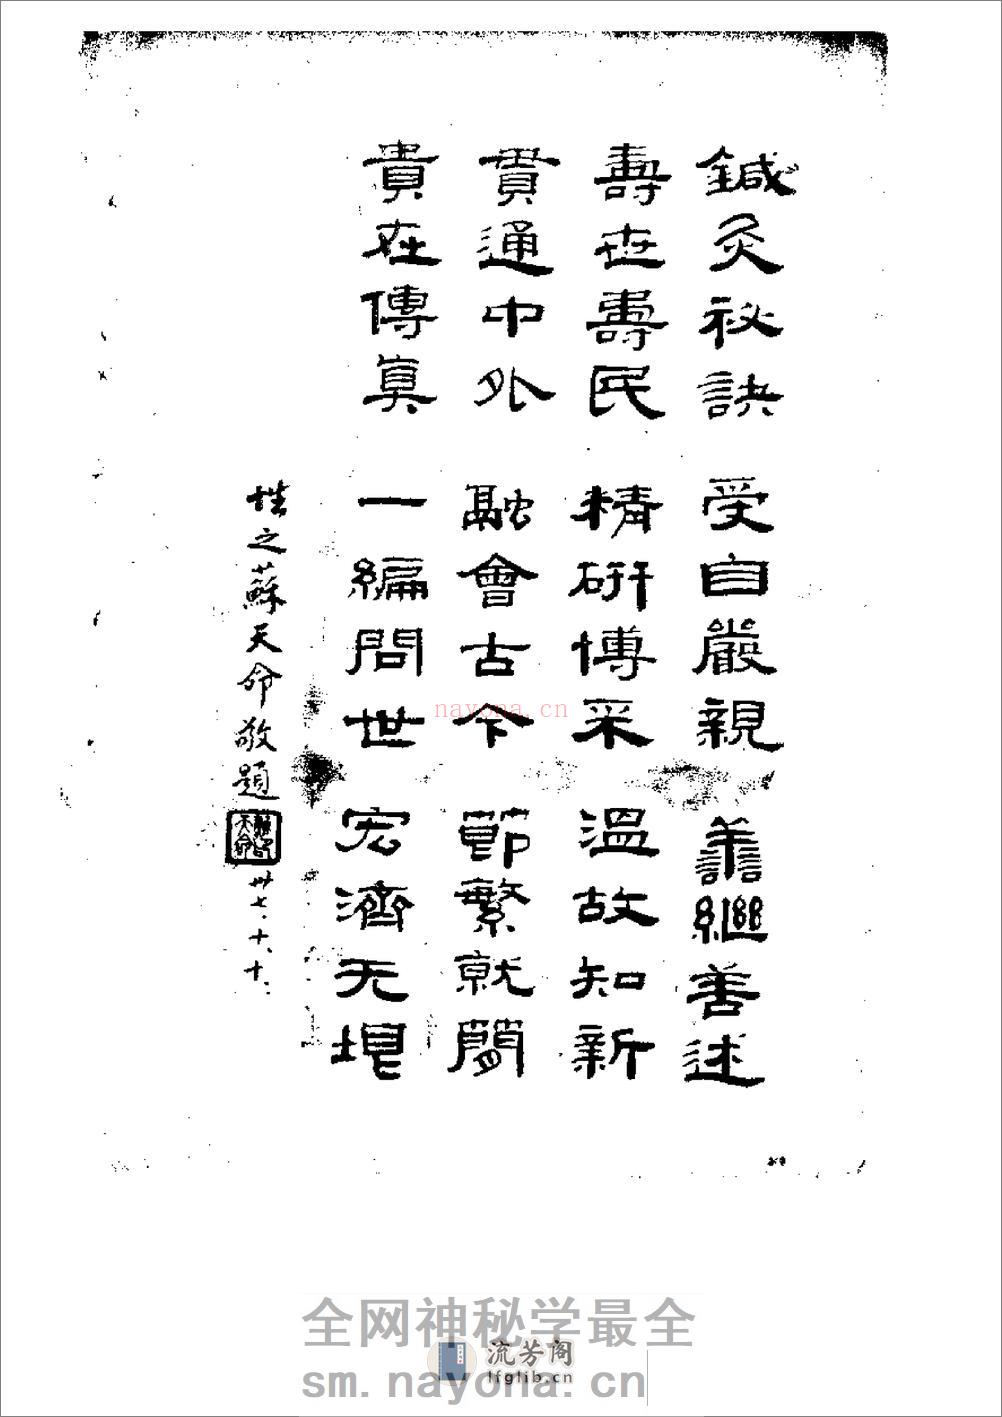 鍼灸祕訣　受自嚴親　譱繼善述
壽世壽民　精研博采　溫故知新
貫通中外　融會古今　節繁就簡
貴在傳真　一編問世　宏濟无垠
性之蘇天命敬題
卅七、十、十、
nayona.cn
全网神秘学最全
流芳阁
lfglib.cn
sm.nayona.cn